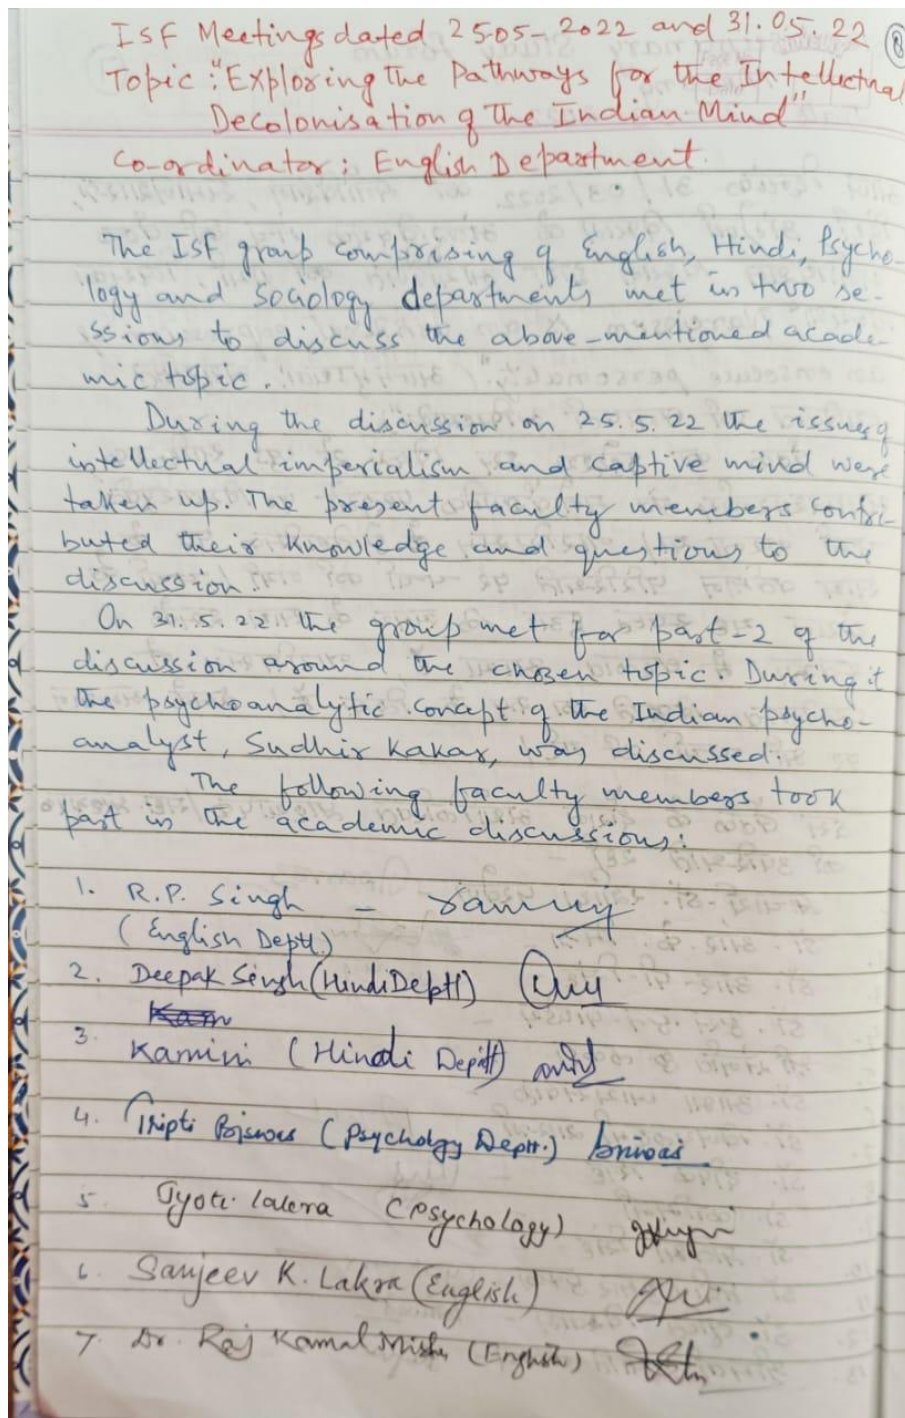 ISF Meetings dated 25-05-2022 and 31.05.22
8
Topic: "Exploring the Pathways for the Intellectual
Decolonisation of the Indian Mind"
Co-ordinator: English Department.
The ISF group comprising of English, Hindi, Psycho-
logy and Sociology departments met in two se-
ssions to discuss the above-mentioned acade-
mic topic.
During the discussion on 25.5.22 the issues of
intellectual imperialism and captive mind were
taken up. The present faculty members contri-
buted their knowledge and questions to the
discussion.
On 31.5.22 the group met for part-2 of the
discussion around the chosen topic. During it
the psychoanalytic concept of the Indian psycho-
analyst, Sudhir Kakar, was discussed.
The following faculty members took
part in the academic discussions:
1. R.P. Singh -
(English Deptt)
2. Deepak Singh (Hindi Deptt)
Kam
3. Kamini (Hindi Deptt)
4. Tripti Biswas (Psychology Deptt.)
5. Jyoti Lakra (Psychology)
6. Sanjeev K. Lakra (English)
7. Dr. Raj Kamal Mishra (English)